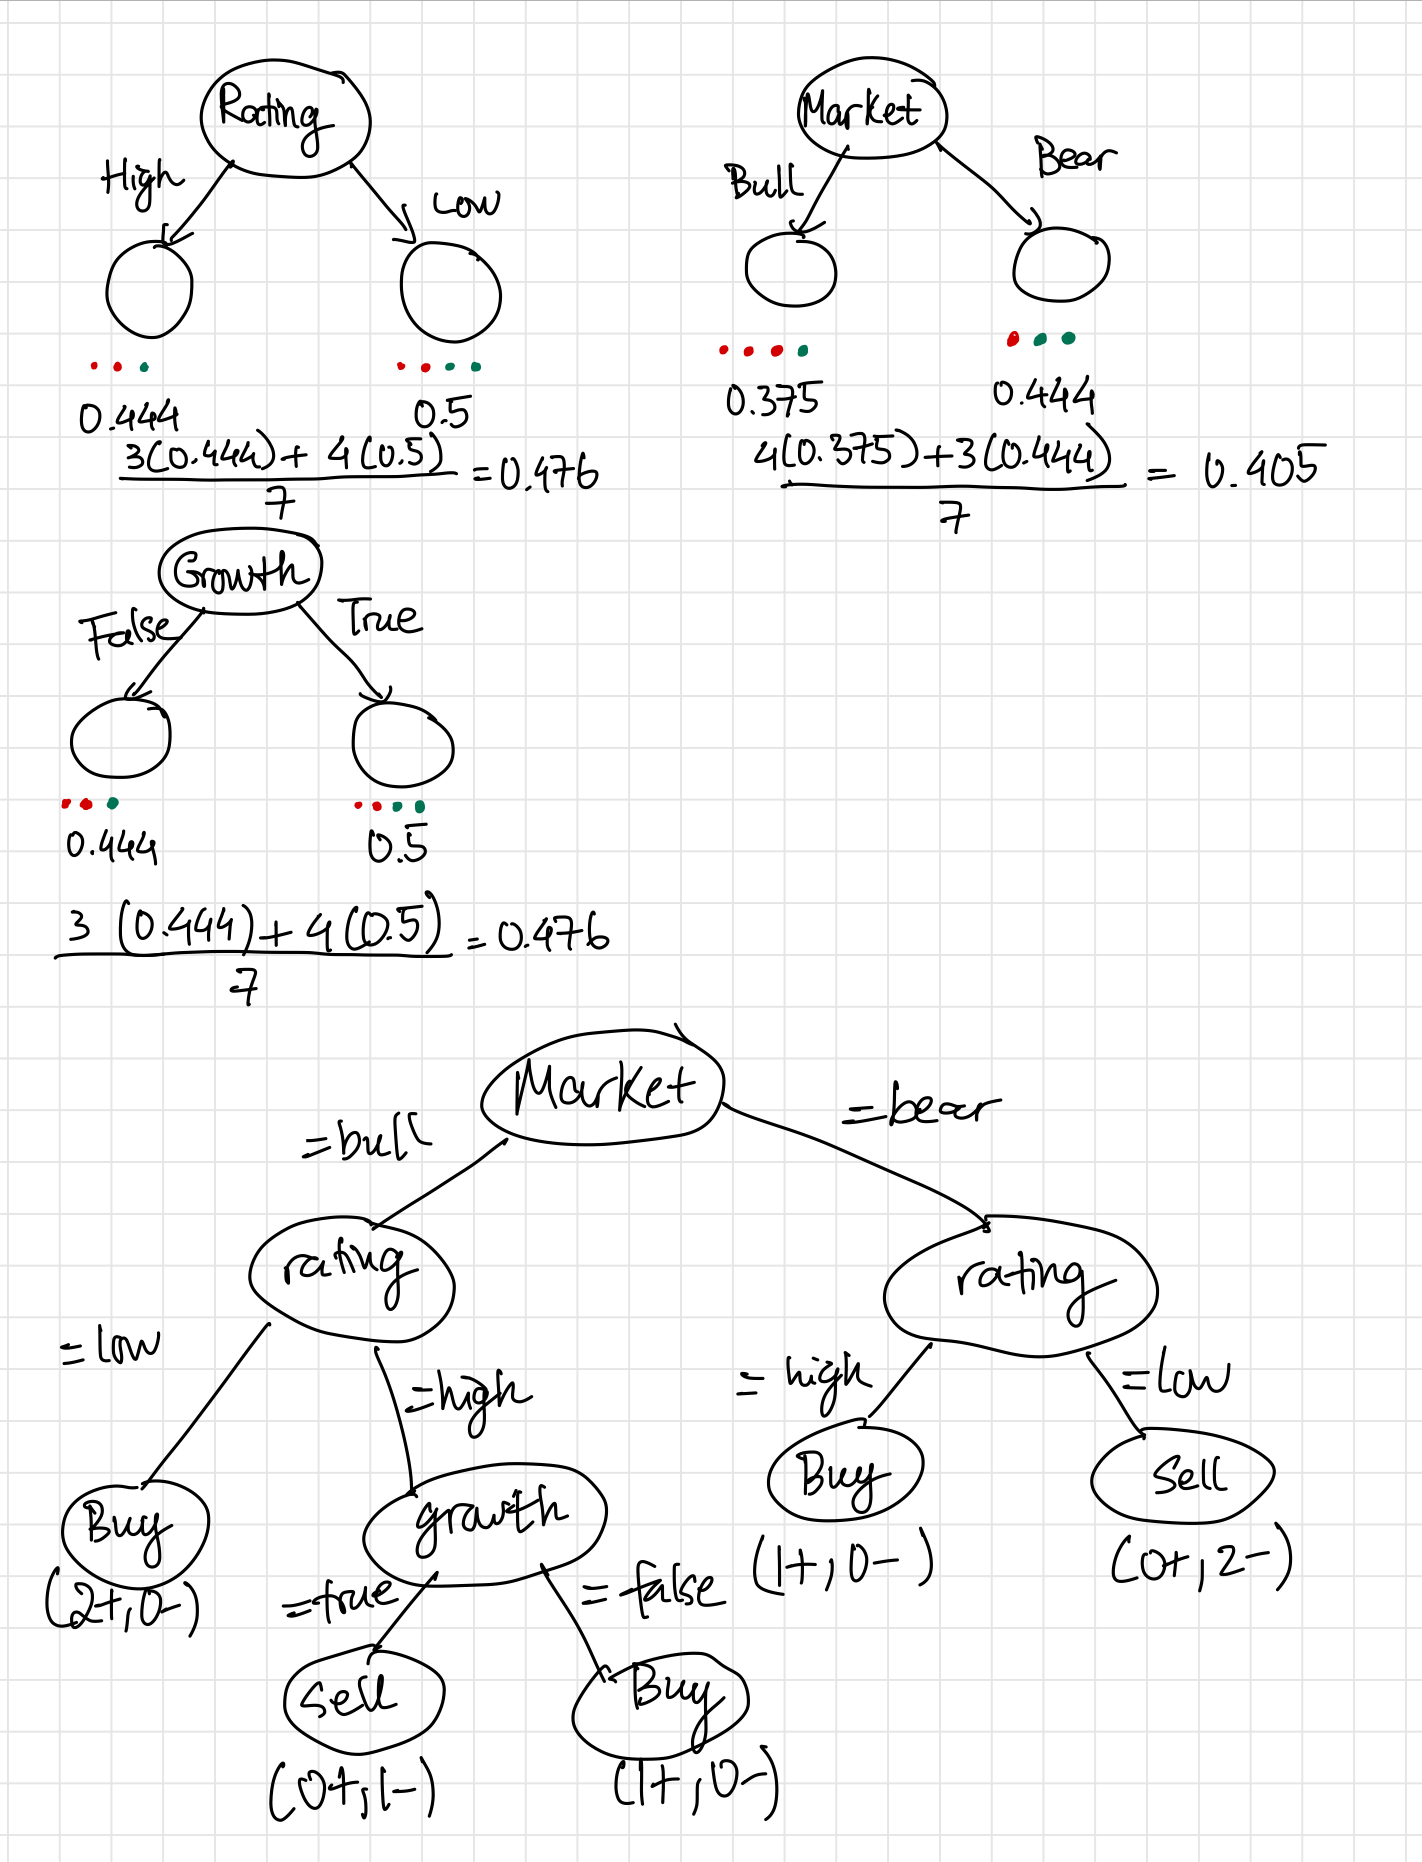 Rating
High
Low
0.444
0.5
3(0.444) + 4(0.5)
7
= 0.476
Market
Bull
Bear
0.375
0.444
4(0.375)+3(0.444)
7
= 0.405
Growth
False
True
0.444
0.5
3 (0.444) + 4(0.5)
7
= 0.476
Market
=bull
=bear
rating
rating
=low
=high
= high
=low
Buy
growth
Buy
Sell
(2+,0-)
(1+,0-)
(0+,2-)
=true
=false
Sell
Buy
(0+,1-)
(1+,0-)